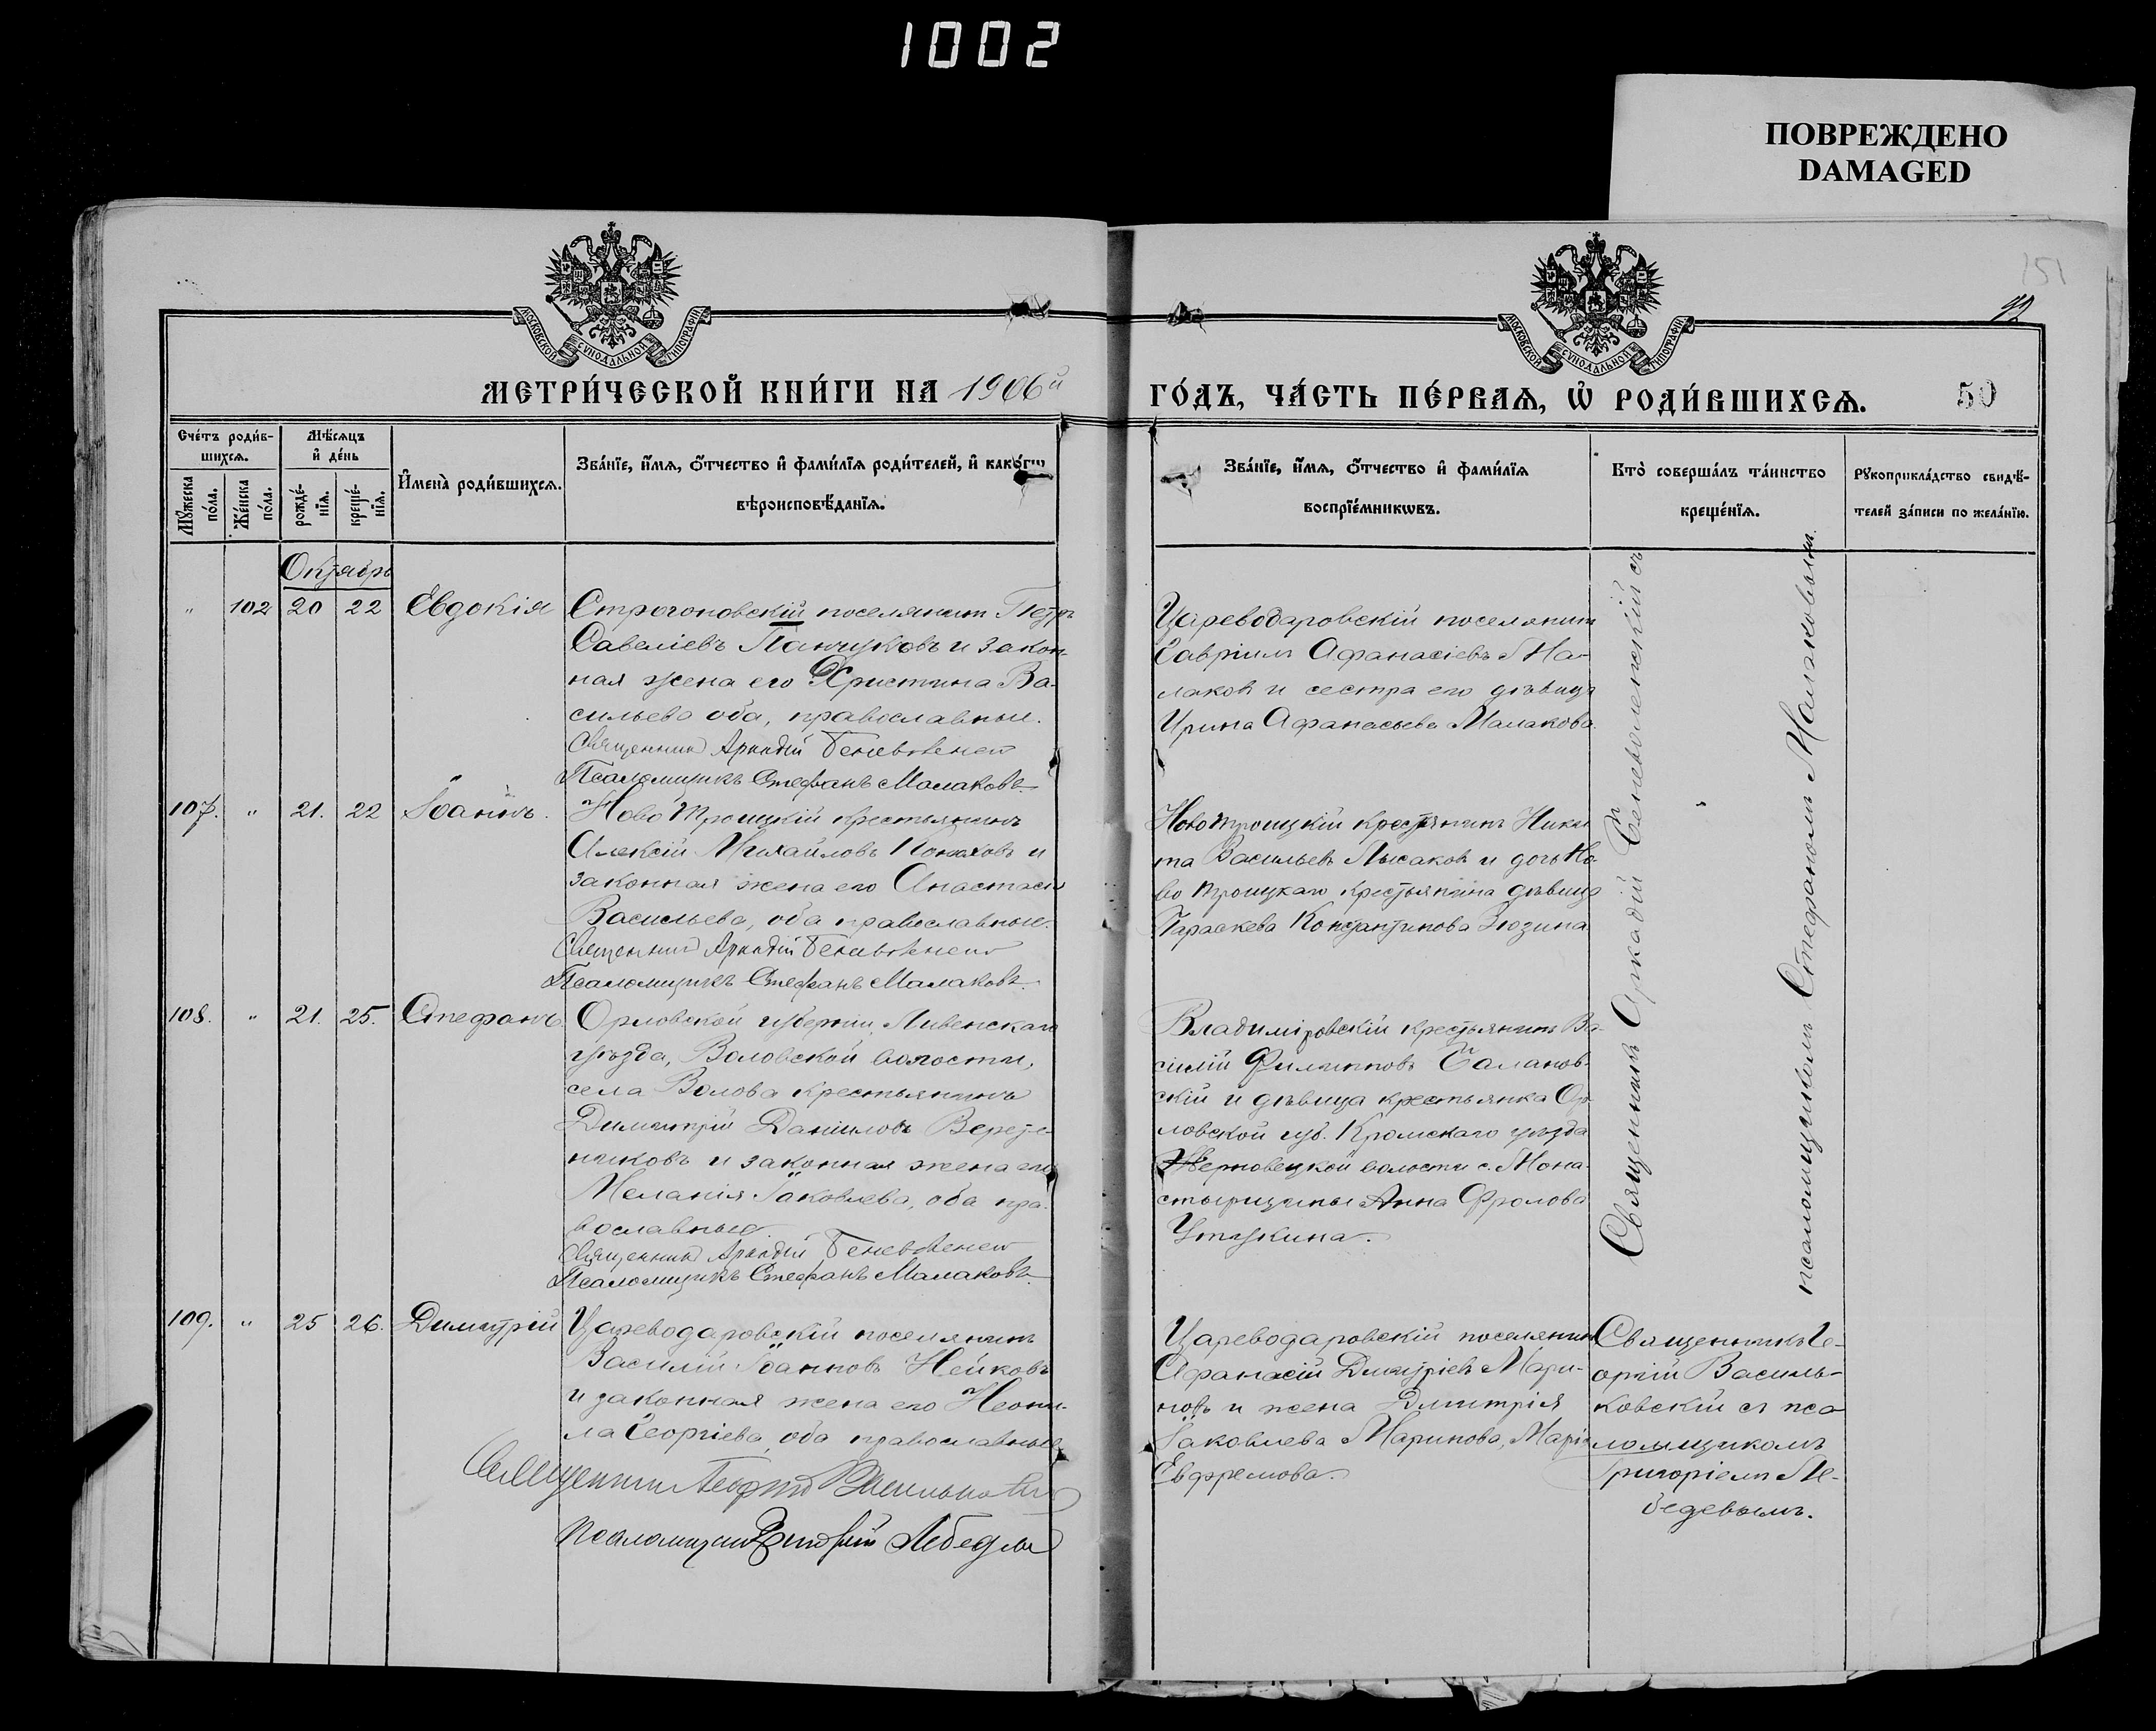 1002
ПОВРЕЖДЕНО
DAMAGED
151
МОСКОВСКОЙ СѴНОДАЛЬНОЙ ТИПОГРАФІИ
МОСКОВСКОЙ СѴНОДАЛЬНОЙ ТИПОГРАФІИ
МЕТРИ́ЧЕСКОЙ КНИ́ГИ НА 1906й
ГО́ДЪ, ЧА́СТЬ ПЕ́РВАѦ, Ѡ҆ РОДИ́ВШИХСѦ.
50
Сче́тъ роди́в-
шихсѧ.
Мꙋ́жеска по́ла.
Же́нска по́ла.
Мѣ́сѧцъ
и҆ де́нь
рожде́-
нїѧ.
креще́-
нїѧ.
И҆мена̀ роди́вшихсѧ.
Зва́нїе, и҆́мѧ, ѻ҆́тчество и҆ фами́лїѧ роди́телей, и҆ како́гѡ
вѣроисповѣ́данїѧ.
Зва́нїе, и҆́мѧ, ѻ҆́тчество и҆ фами́лїѧ
воспрїе́мникѡвъ.
Кто̀ соверша́лъ та́инство
креще́нїѧ.
Рꙋкоприкла́дство свидѣ́-
телей за́писи по жела́нїю.
Октябрь
" 102 20 22 Евдокія
Строгоновскій поселянинъ Петръ
Савеліевъ Панчуковъ и закон-
ная жена его Христина Ва-
сильева оба, православные.
Священникъ Аркадій
Псаломщикъ Стефанъ Малаковъ
Цареводаровскій поселянинъ
Гавріилъ Афанасіевъ Ма-
лаковъ и сестра его дѣвица
Ирина Афанасьева Малакова.
107. " 21. 22 Іоаннъ.
Ново Троицкій крестьянинъ
Алексій Михайловъ Конаховъ и
законная жена его Анастасія
Васильева, оба православные.
Священникъ Аркадій
Псаломщикъ Стефанъ Малаковъ.
Ново троицкій крестьянинъ Ники-
та Васильевъ Лысаковъ и дочь Но-
во троицкаго крестьянина дѣвица
Параскева Константинова Зюзина
108. " 21. 25. Стефанъ.
Орловской губерніи, Ливенскаго
уѣзда, Воловской волости,
села Волова крестьянинъ
Димитрій Даніиловъ Верете-
нниковъ и законная жена его
Меланія Іаковлева, оба пра-
вославные.
Священникъ Аркадій
Псаломщикъ Стефанъ Малаковъ.
Владиміровскій крестьянинъ Ва-
силій Филипповъ Баланов-
скій и дѣвица крестьянка Ор-
ловской губ. Кромскаго уѣзда
волости с. Мона-
стырщины Анна Фролова
Уташкина.
Священникъ Аркадій съ
псаломщикомъ Стефаномъ Малаковымъ.
109. " 25 26. Димитрій
Цареводаровскій поселянинъ
Василій Іоанновъ Нейковъ
и законная жена его Неони-
ла Георгіева, оба православные
Священникъ Георгій Васильковскій
Псаломщикъ Григорій Лебедевъ
Цареводаровскій поселянинъ
Афанасій Димитріевъ Мари-
новъ и жена Димитрія
Іаковлева Маринова, Марія
Евфремова.
Священникъ Ге-
оргій Василь-
ковскій съ пса-
ломщикомъ
Григоріемъ Ле-
бедевымъ.